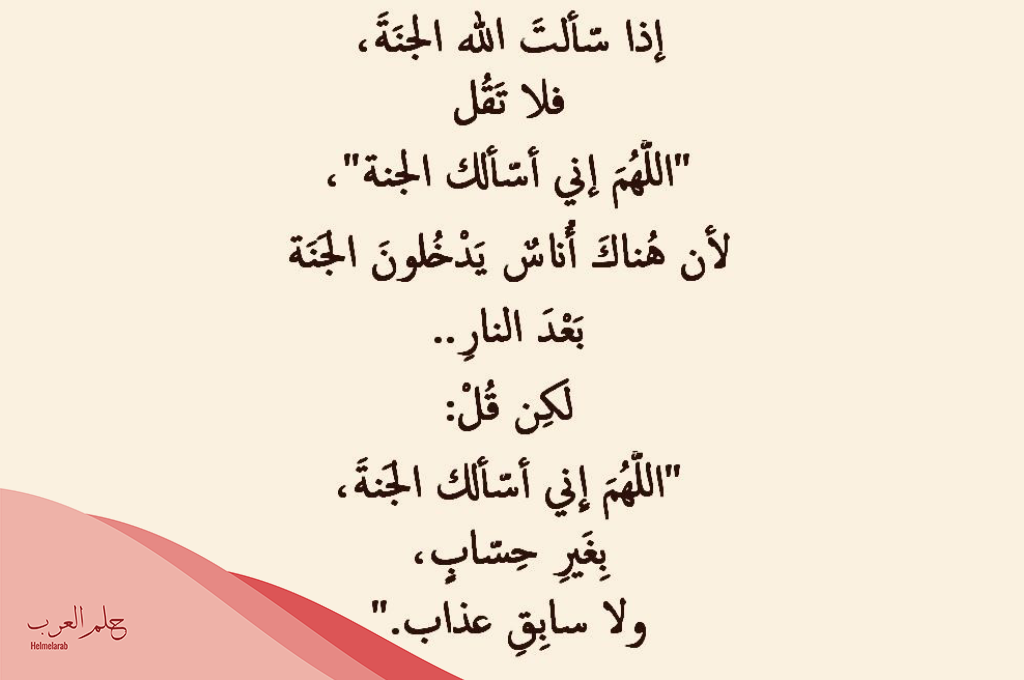 إذا سّألتَ الله الجنَةَ،
فلا تَقُل
"اللَّهُمَ إني أسّألك الجنة"،
لأن هُناكَ أُناسٌ يَدْخُلونَ الجَنَة
بَعْدَ النارِ..
لَكِن قُلْ:
"اللَّهُمَ إِني أسّألك الجَنةَ،
بِغَيرِ حِسّابٍ،
ولا سابِقِ عذاب."
حلم العرب
Helmelarab